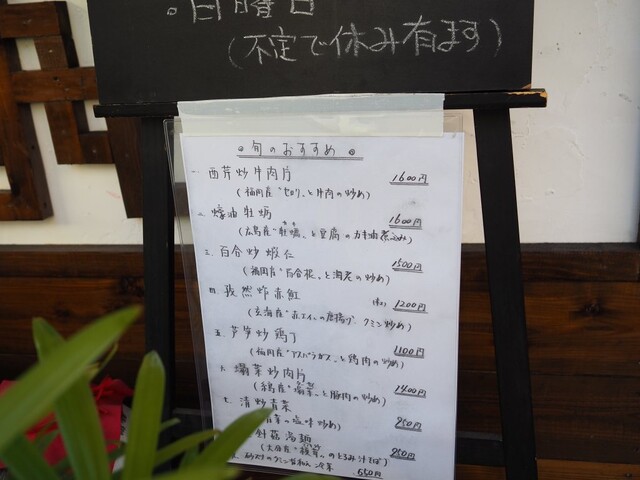 。日曜日
(不定で休み有ます)
旬のおすすめ
一 西芹炒牛肉片 1600円
(福岡産"セロリ"と牛肉の炒め)
二 蠔油牡蠣 1600円
(広島産"牡蠣"と豆腐のカキ油煮込み)
三 百合炒蝦仁 1500円
(福岡産"百合根"と海老の炒め)
四 孜然炸赤魟 1200円
(玄海産"赤エイ"の唐揚げ クミン炒め)
五 芦笋炒鶏丁 1100円
(福岡産"アスパラガス"と鶏肉の炒め)
六 炒肉片 1400円
と豚肉の炒め)
七 清炒青菜 950円
青菜の塩味炒め)
湯麺 950円
(大分産 のとろみ汁そば)
冷菜 650円